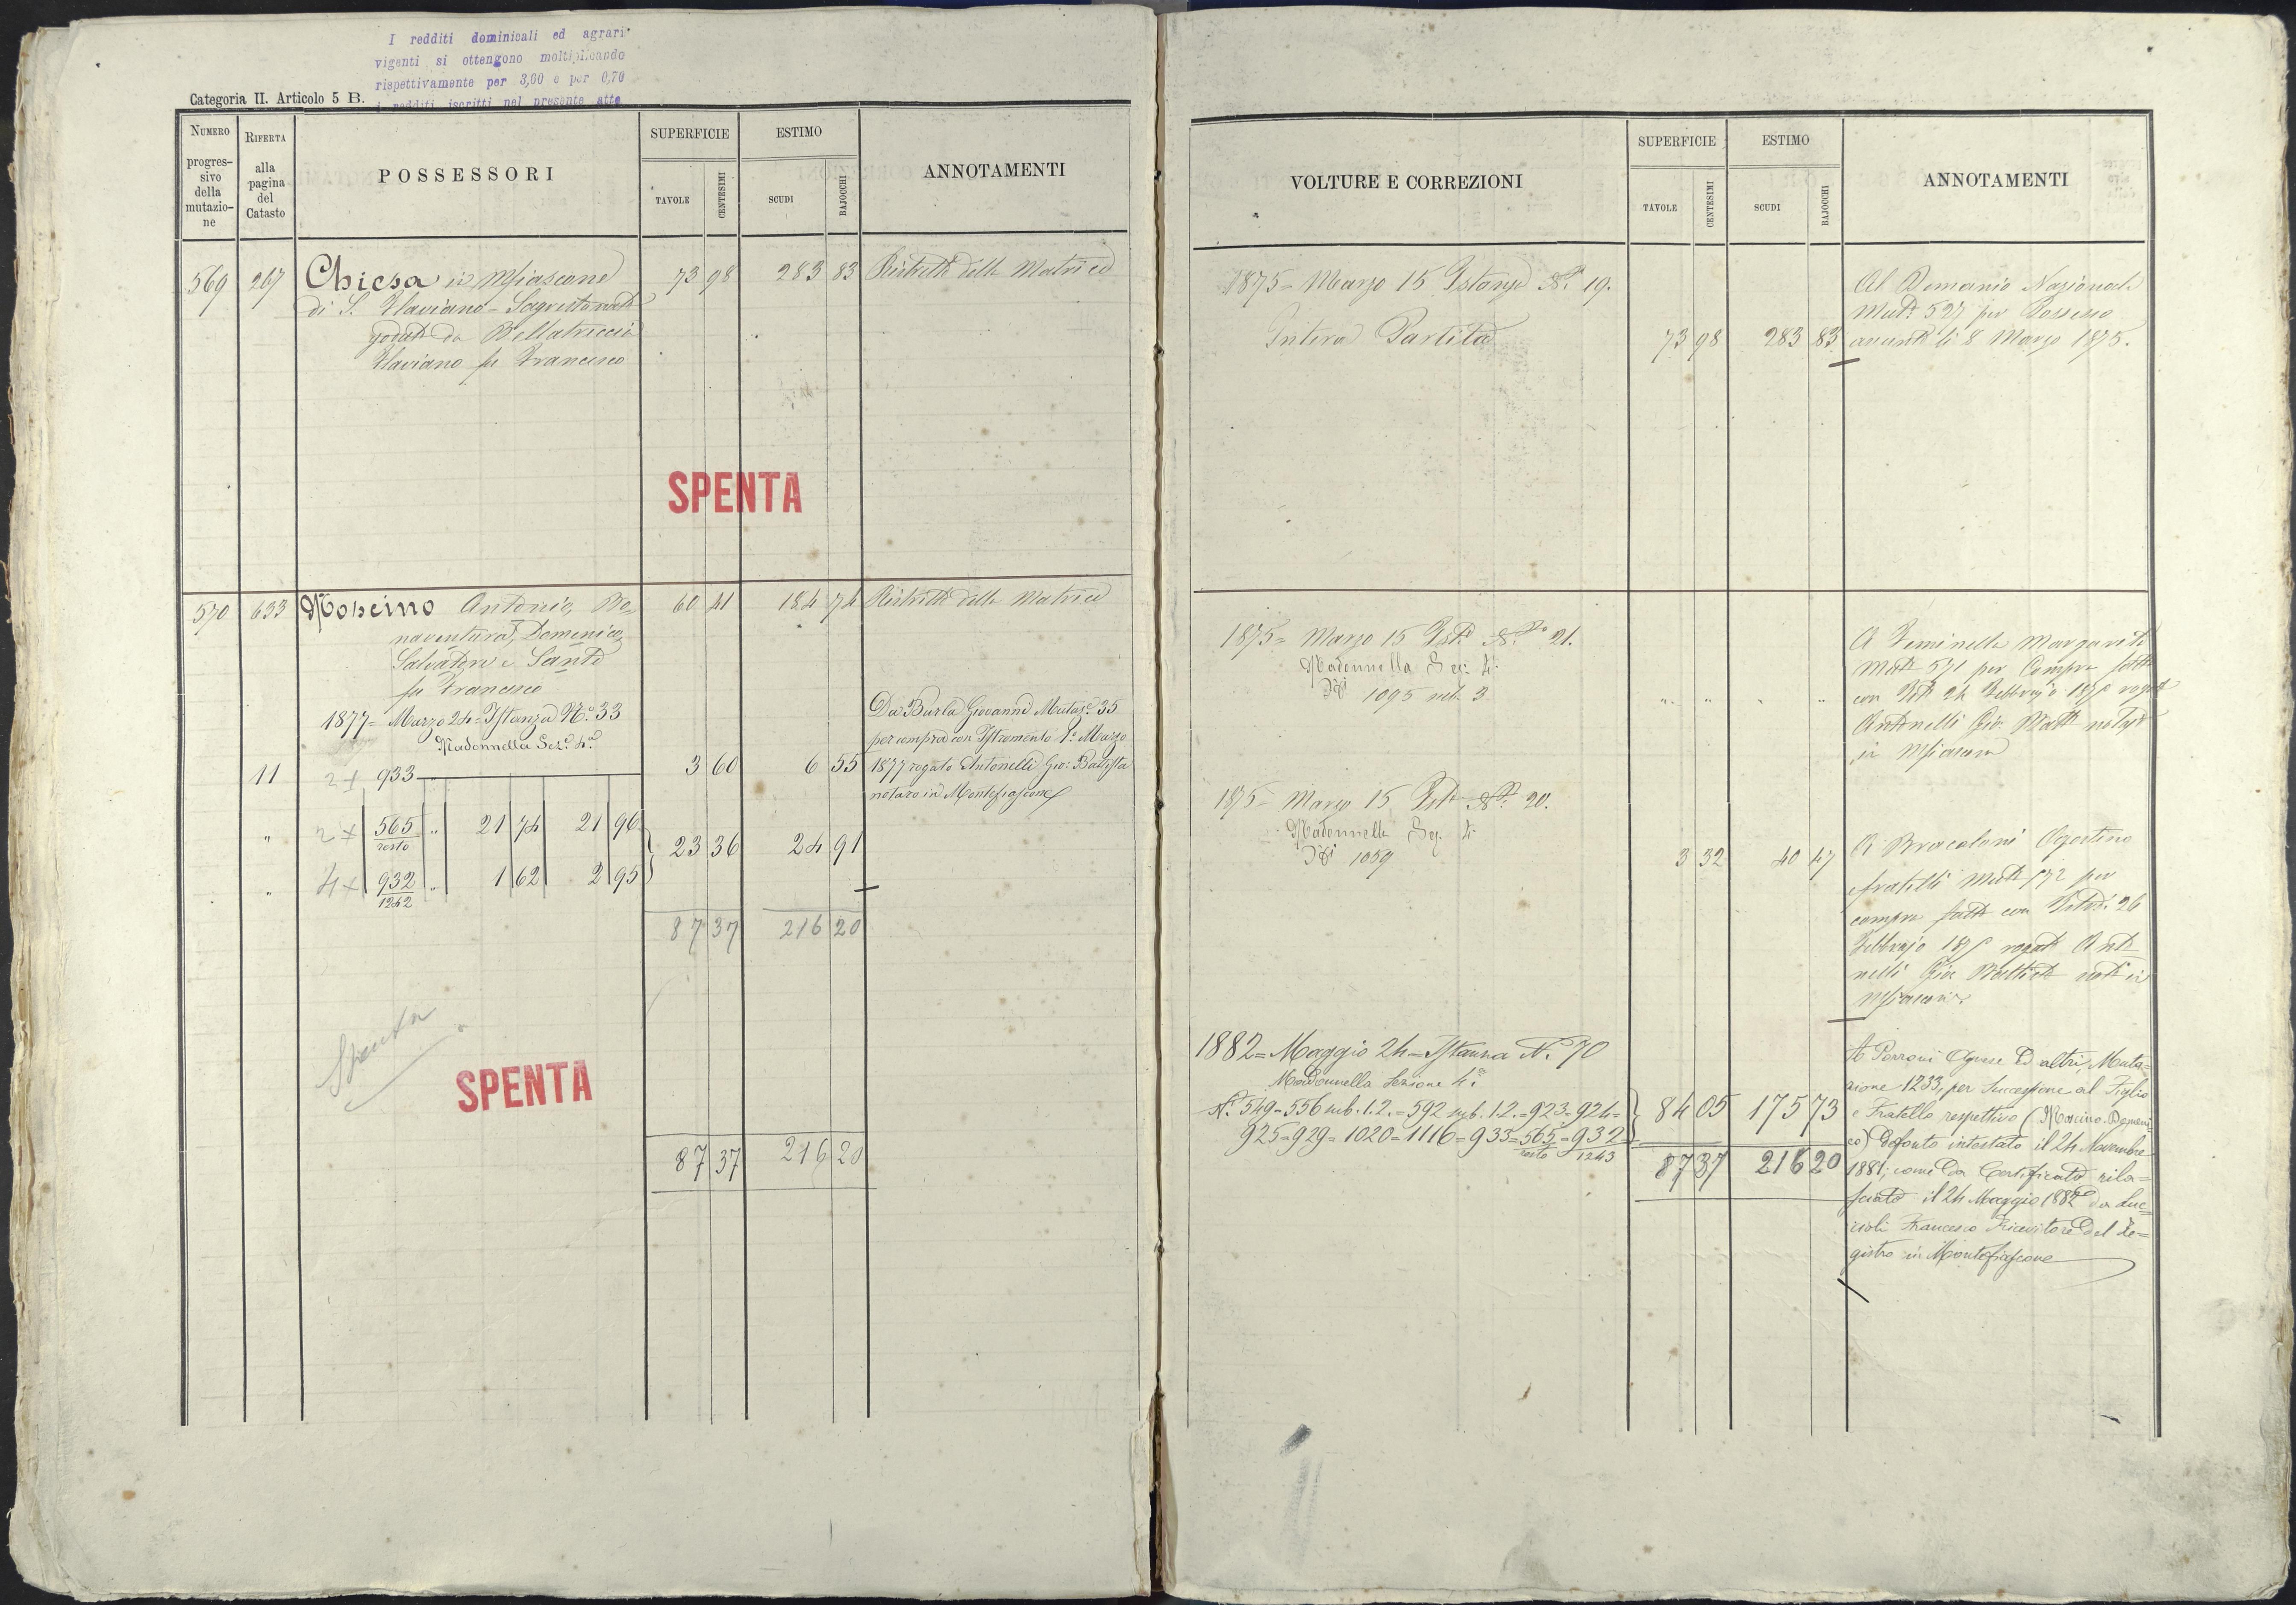 I redditi dominicali ed agrari
vigenti si ottengono moltiplicando
rispettivamente per 3,60 e per 0,70
i redditi iscritti nel presente atto
Categoria II. Articolo 5 B.
NUMERO progressivo della mutazione
RIFERTA alla pagina del Catasto
POSSESSORI
SUPERFICIE
TAVOLE
CENTESIMI
ESTIMO
SCUDI
BAJOCCHI
ANNOTAMENTI
569 267 Chiesa in Mfiascone 73 98 283 83 Ristretto della Matrice
di S. Flaviano - Sagrestana
goduta da Bellatreccia
Flaviano fu Francesco
SPENTA
570 633 Moscino Antonio, Bo 60 41 184 74 Ristretto della Matrice
naventura, Domenico,
Salvatore e Santo
fu Francesco
1877 = Marzo 24 = Istanza N.° 33
Madonnella Sez.e 4.a
11 2 + 933 3 60 6 55
Da Burla Giovanni Mutaz.e 35
per compra con Istromento 1.° Marzo
1877 rogato Antonelli Gio: Battista
notaro in Montefiascone
" 2 + 565 resto " 21 74 21 96
23 36 24 91
" 4 + 932/1242 " 1 62 2 95
87 37 216 20
Spenta
SPENTA
87 37 216 20
VOLTURE E CORREZIONI
SUPERFICIE
TAVOLE
CENTESIMI
ESTIMO
SCUDI
BAJOCCHI
ANNOTAMENTI
1875 = Marzo 15 Istanza N.° 19.
Intera Partita 73 98 283 83
Al Demanio Nazionale
Mut.e 527 per Possesso
avuto li 8 Marzo 1875.
1875 = Marzo 15 Ist.a N.° 21.
Madonnella Sez. 4.
Ni 1095 sub. 3 " " " "
A Feminella Margarita
Mut.e 571 per Compra fatta
con Ist. 24 Febbrajo 1875 rogato
Antonelli Gio: Batt.a notajo
in Mfiascone
1875 = Marzo 15 Ist.a N.° 20.
Madonnella Sez. 4.
Ni 1059 3 32 40 47
A Bracaloni Agostino
e fratelli Mut.e 572 per
compra fatta con Istro. 26
Febbrajo 1875 rogato Anto
nelli Gio: Battista not.o in
Mfiascone
1882 = Maggio 24 = Istanza N. 70
Madonnella Sezione 4.a
N.i 549 = 556 sub. 1.2. = 592 sub. 1.2. = 923 = 924 =
925 = 929 = 1020 = 1116 = 933 = 565 resto = 932/1243
84 05 175 73
87 37 216 20
A Porroni Agnese ed altri, Muta=
zione 1233, per Successione al Figlio
e Fratello respettivo (Moscino Domeni=
co) defonto intestato il 24 Novembre
1881, come da Certificato rila=
sciato il 24 Maggio 1882 da Luc=
cioli Francesco Ricevitore del Re=
gistro in Montefiascone